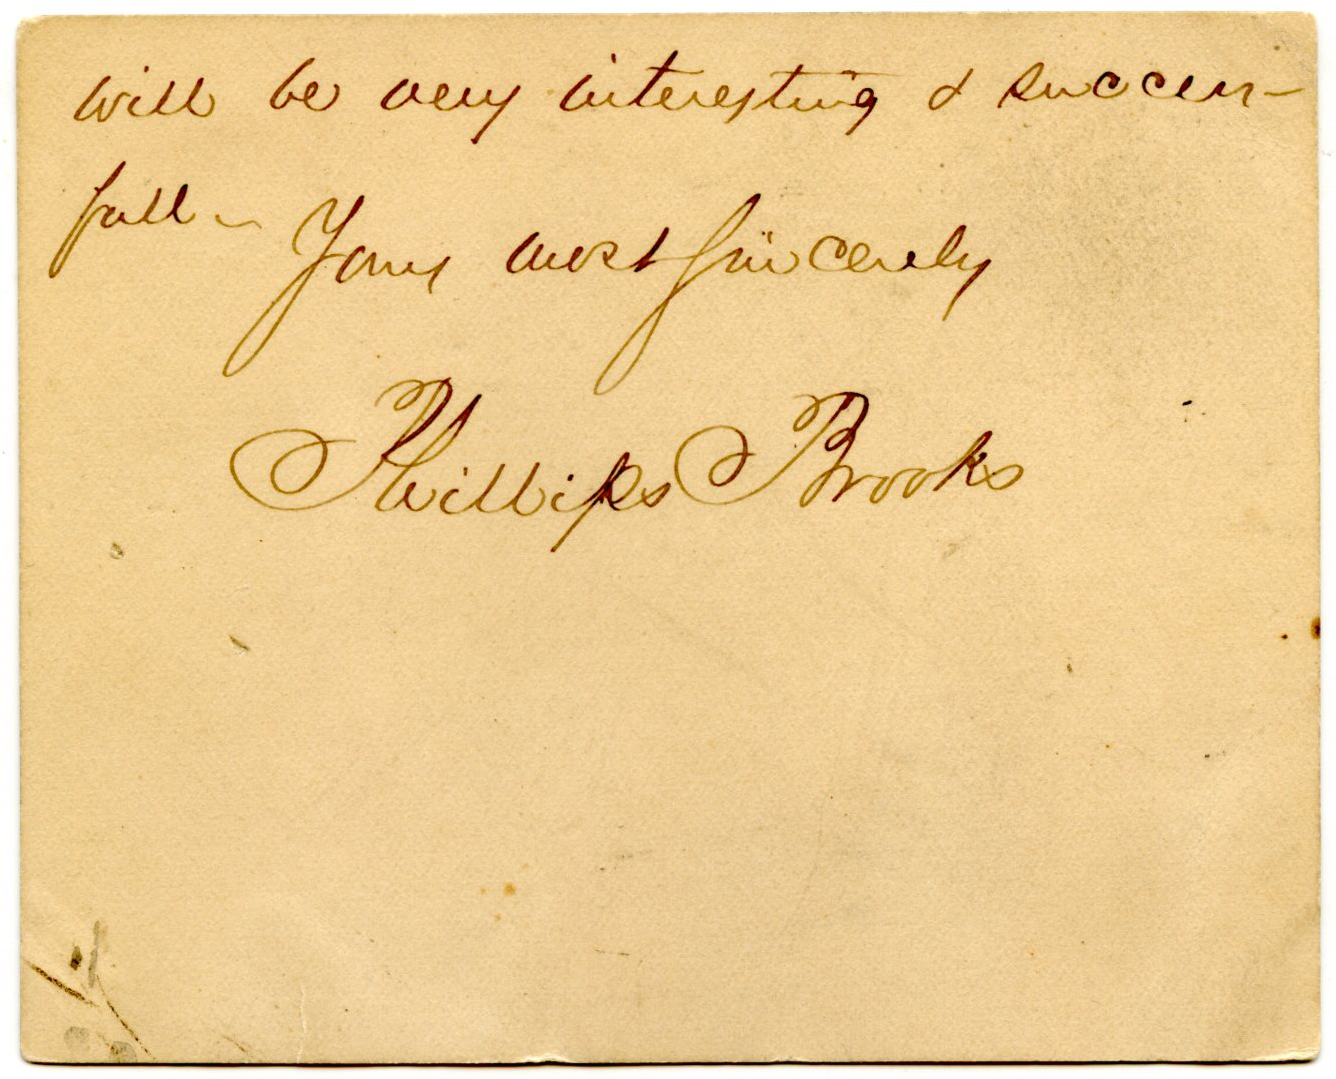 will be very interesting & success-
full -
Yours most sincerely
Phillips Brooks